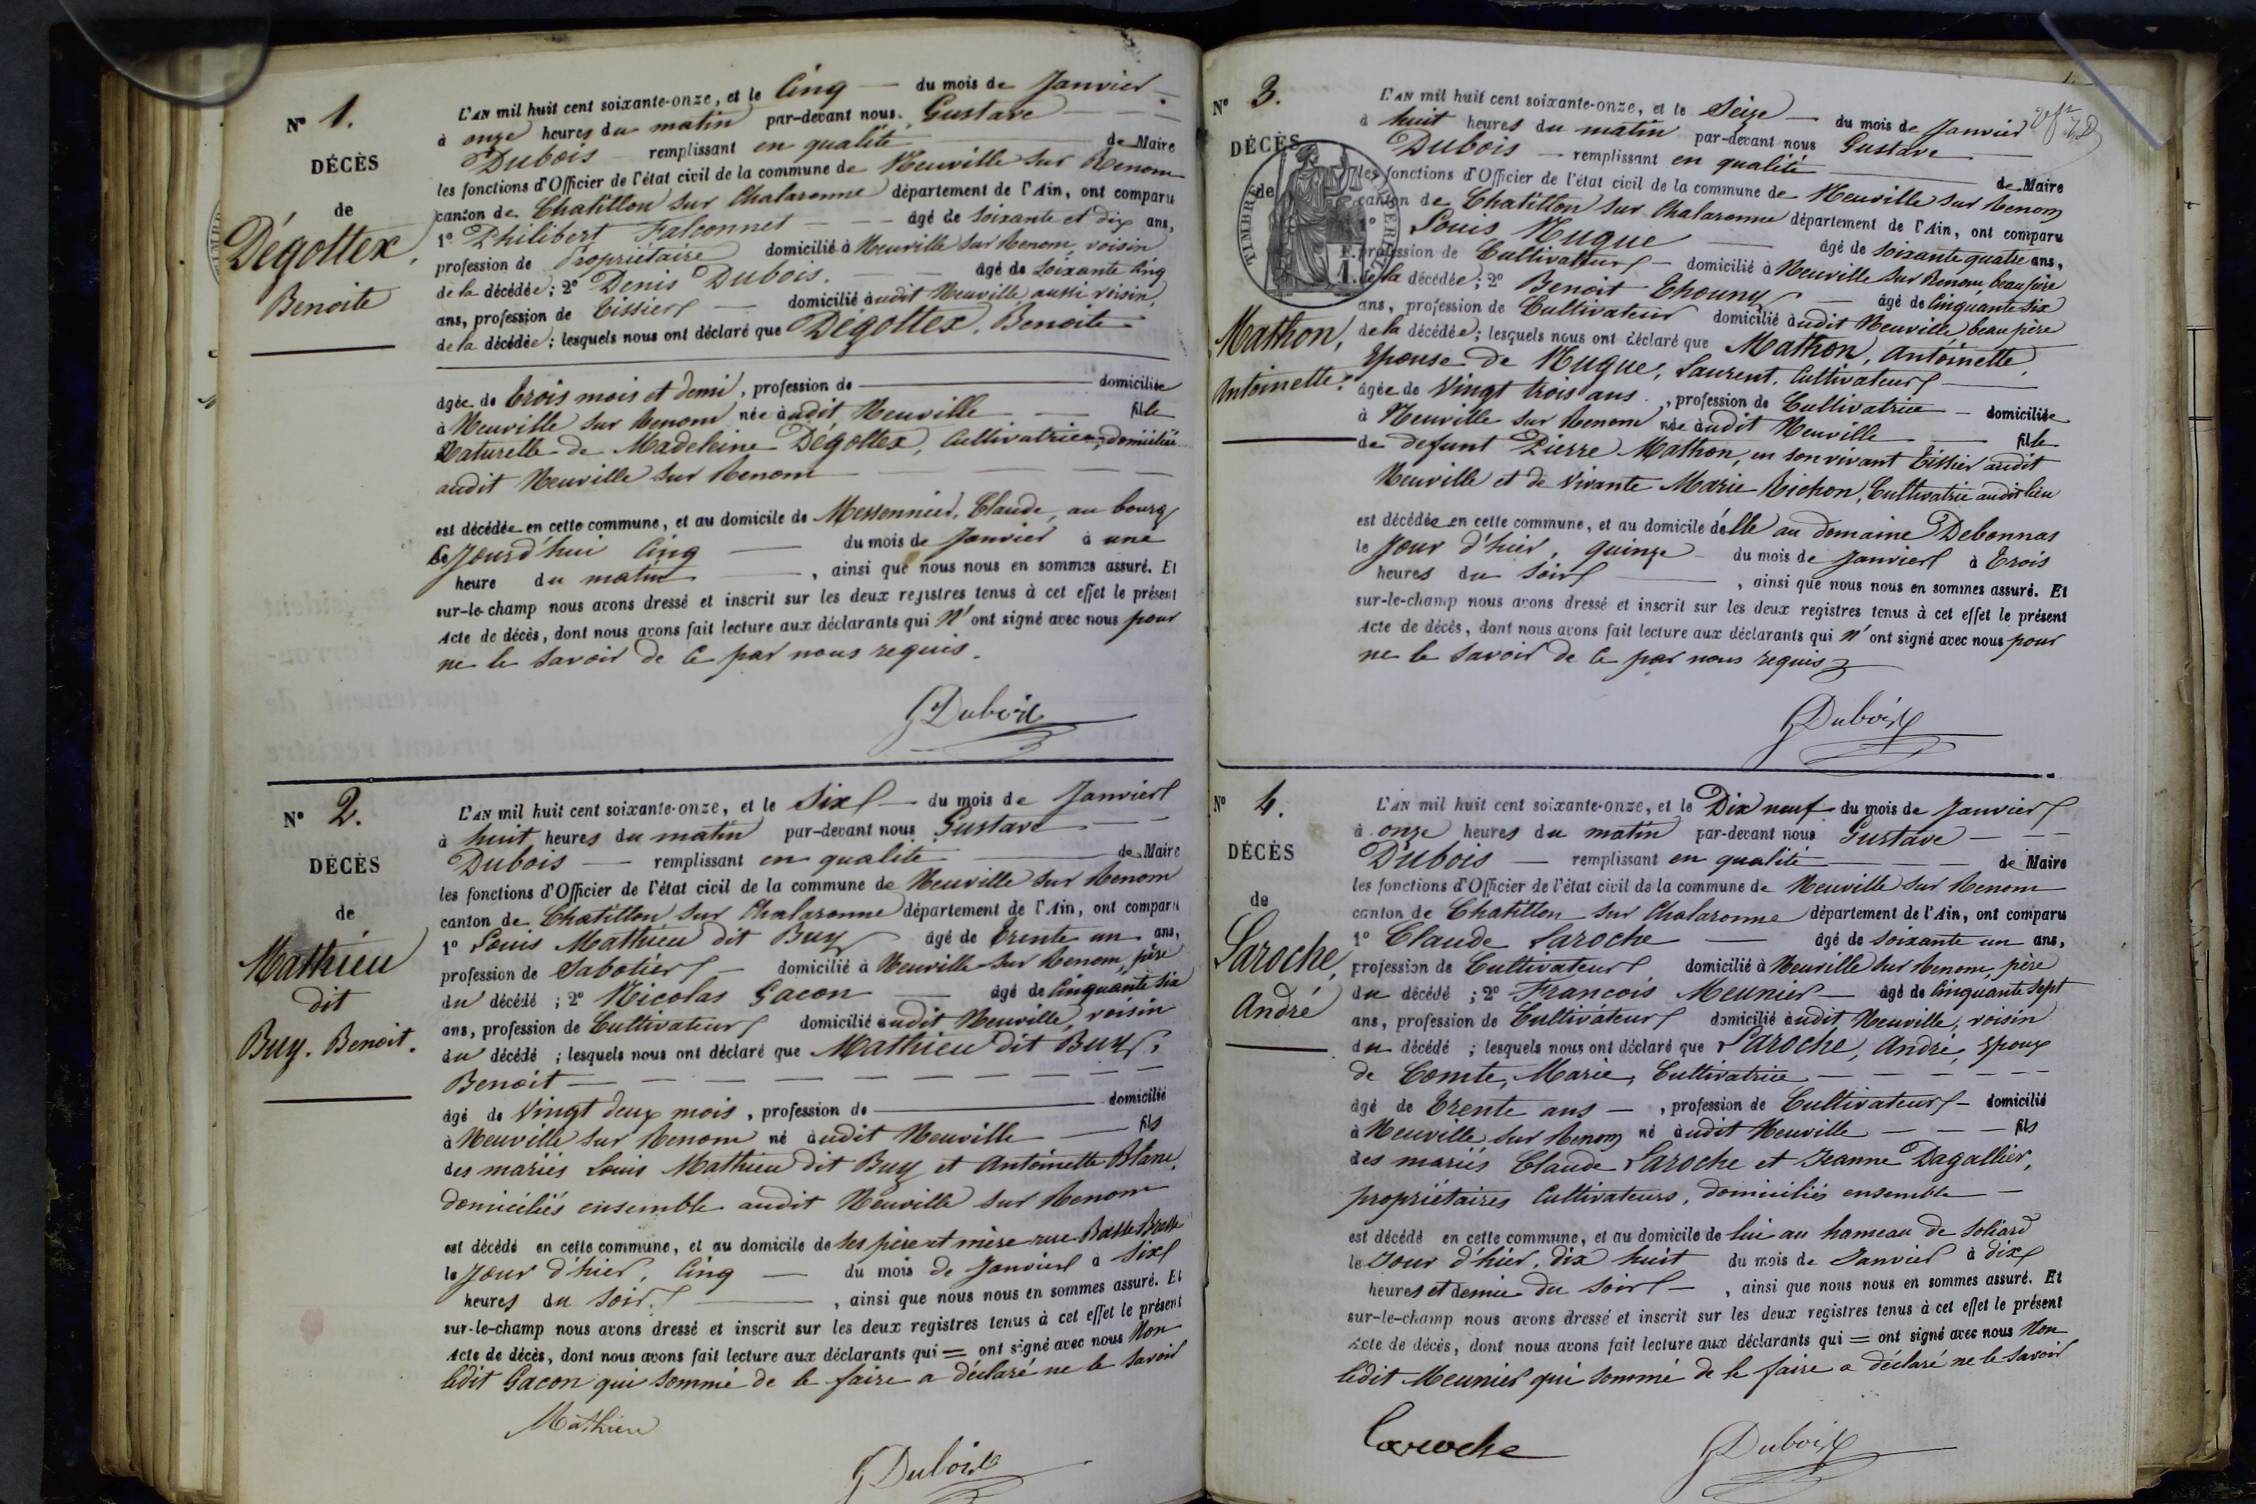 N° 1.
DÉCÈS
de
Dégottex,
Benoite
L'AN mil huit cent soixante-onze, et le Cinq — du mois de Janvier
à onze heures du matin par-devant nous Gustave
Dubois remplissant en qualité de Maire
les fonctions d'Officier de l'état civil de la commune de Neuville sur Renom
canton de Chatillon sur Chalaronne département de l'Ain, ont comparu
1° Philibert Falconnet — âgé de soixante et dix ans,
profession de Propriétaire domicilié à Neuville sur Renom, voisin
de la décédée; 2° Denis Dubois. — âgé de soixante cinq
ans, profession de Tissier — domicilié audit Neuville aussi voisin
de la décédée; lesquels nous ont déclaré que Dégottex, Benoite
âgée de trois mois et demi, profession de — domiciliée
à Neuville sur Renom née audit Neuville — fille
Naturelle de Madeleine Dégottex, Cultivatrice, domiciliée
audit Neuville sur Renom
est décédée en cette commune, et au domicile de Messonnier, Claude, au bourg
ce Jourd'hui Cinq — du mois de Janvier à une
heure du matin —, ainsi que nous nous en sommes assuré. Et
sur-le-champ nous avons dressé et inscrit sur les deux registres tenus à cet effet le présent
Acte de décès, dont nous avons fait lecture aux déclarants qui n'ont signé avec nous pour
ne le savoir de ce par nous requis.
GDubois
N° 2.
DÉCÈS
de
Mathieu
dit
Buy. Benoit.
L'AN mil huit cent soixante-onze, et le Six — du mois de Janvier
à huit heures du matin par-devant nous Gustave
Dubois — remplissant en qualité de Maire
les fonctions d'Officier de l'état civil de la commune de Neuville sur Renom
canton de Chatillon sur Chalaronne département de l'Ain, ont comparu
1° Louis Mathieu dit Buy âgé de trente un ans,
profession de Sabotier — domicilié à Neuville sur Renom, père
du décédé ; 2° Nicolas Gacon — âgé de Cinquante six
ans, profession de Cultivateur domicilié audit Neuville, voisin
du décédé ; lesquels nous ont déclaré que Mathieu dit Buy,
Benoit — — — — — — — — —
âgé de Vingt deux mois, profession de — domicilié
à Neuville sur Renom né audit Neuville — fils
des mariés Louis Mathieu dit Buy et Antoinette Blanc,
domiciliés ensemble audit Neuville sur Renom
est décédé en cette commune, et au domicile de ses père et mère rue Basse
le Jour d'hier, Cinq — du mois de Janvier à six
heures du soir —, ainsi que nous nous en sommes assuré. Et
sur-le-champ nous avons dressé et inscrit sur les deux registres tenus à cet effet le présent
Acte de décès, dont nous avons fait lecture aux déclarants qui = ont signé avec nous Non
ledit Gacon qui sommé de le faire a déclaré ne le savoir
Mathieu
GDubois
N° 3.
DÉCÈS
de
Mathon,
Antoinette.
L'AN mil huit cent soixante-onze, et le Seize — du mois de Janvier
à huit heures du matin par-devant nous Gustave
Dubois — remplissant en qualité de Maire
les fonctions d'Officier de l'état civil de la commune de Neuville sur Renom
canton de Chatillon sur Chalaronne département de l'Ain, ont comparu
1° Louis Nugue — âgé de soixante quatre ans,
profession de Cultivateur — domicilié à Neuville sur Renom, beau père
de la décédée; 2° Benoit Thouny — âgé de Cinquante six
ans, profession de Cultivateur domicilié audit Neuville, beau père
de la décédée; lesquels nous ont déclaré que Mathon, Antoinette,
Epouse de Nugue, Laurent, Cultivateur
âgée de Vingt trois ans, profession de Cultivatrice — domiciliée
à Neuville sur Renom née audit Neuville — fille
de defunt Pierre Mathon, en son vivant Tissier audit
Neuville et de Vivante Marie Richon, Cultivatrice audit lieu
est décédée en cette commune, et au domicile d'elle au domaine Debonnas
le Jour d'hier, quinze — du mois de Janvier à Trois
heures du soir —, ainsi que nous nous en sommes assuré. Et
sur-le-champ nous avons dressé et inscrit sur les deux registres tenus à cet effet le présent
Acte de décès, dont nous avons fait lecture aux déclarants qui n'ont signé avec nous pour
ne le savoir de ce par nous requis
GDubois
N° 4.
DÉCÈS
de
Laroche,
André
L'AN mil huit cent soixante-onze, et le Dix neuf du mois de Janvier
à onze heures du matin par-devant nous Gustave
Dubois — remplissant en qualité de Maire
les fonctions d'Officier de l'état civil de la commune de Neuville sur Renom
canton de Chatillon sur Chalaronne département de l'Ain, ont comparu
1° Claude Laroche — âgé de soixante un ans,
profession de Cultivateur domicilié à Neuville sur Renom, père
du décédé ; 2° Francois Meunier — âgé de Cinquante sept
ans, profession de Cultivateur domicilié audit Neuville, voisin
du décédé ; lesquels nous ont déclaré que Laroche, André, Epoux
de Comte, Marie, Cultivatrice
âgé de Trente ans —, profession de Cultivateur — domicilié
à Neuville sur Renom né audit Neuville — — — fils
des mariés Claude Laroche et Jeanne Dagallier,
propriétaires Cultivateurs, domiciliés ensemble —
est décédé en cette commune, et au domicile de lui au hameau de Soliard
le Jour d'hier, dix huit du mois de Janvier à dix
heures et demie du soir —, ainsi que nous nous en sommes assuré. Et
sur-le-champ nous avons dressé et inscrit sur les deux registres tenus à cet effet le présent
Acte de décès, dont nous avons fait lecture aux déclarants qui = ont signé avec nous Non
ledit Meunier qui sommé de le faire a déclaré ne le savoir
Laroche
GDubois